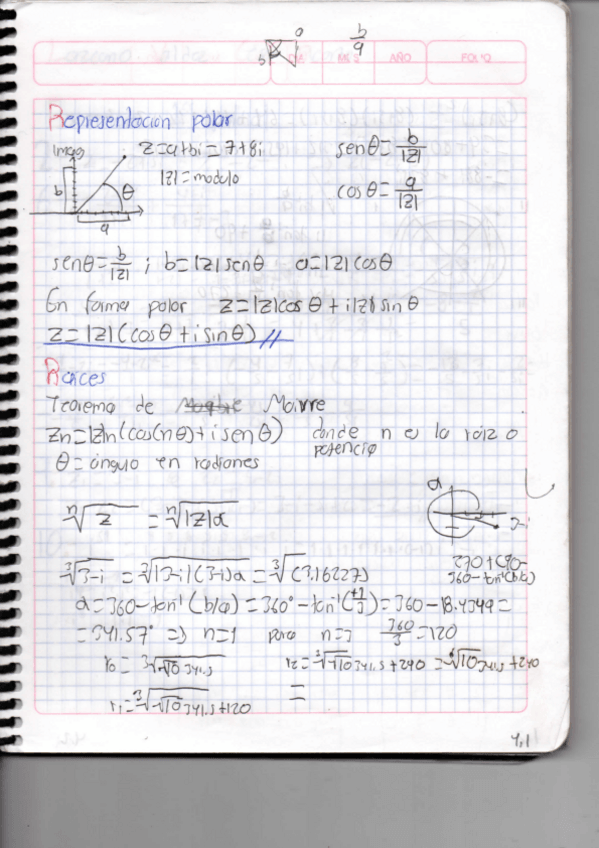 a
b
b
a
AÑO
FOLIO
Representacion polar
Imag
z=a+bi=7+8i
senθ=b/|z|
|z|=modulo
cosθ=a/|z|
b
θ
a
senθ=b/|z| ; b=|z|senθ a=|z|cosθ
En forma polar z=|z|cosθ+i|z|sinθ
z=|z|(cosθ+i sinθ)//
Raices
Teorema de Moivre
Zn=|z|n(cos(nθ)+i sen θ) donde n es la raiz o
potencia
θ=ángulo en radianes
α
ⁿ√z = ⁿ√|z|α
3-i
³√3-i = ³√|3-i|(3-i)α = ³√(3.16227)
270+(90-
360-tan⁻¹(b/a)
α=360-tan⁻¹(b/a)=360°-tan⁻¹(+1/3)=360-18.4349=
=341.57° => n=1 para n=3 360/3=120
r0= ³√√10 341.5
r2=³√√10 341.5+240 = ⁶√10 341.5+240
r1=³√√10 341.5+120
=
4.1